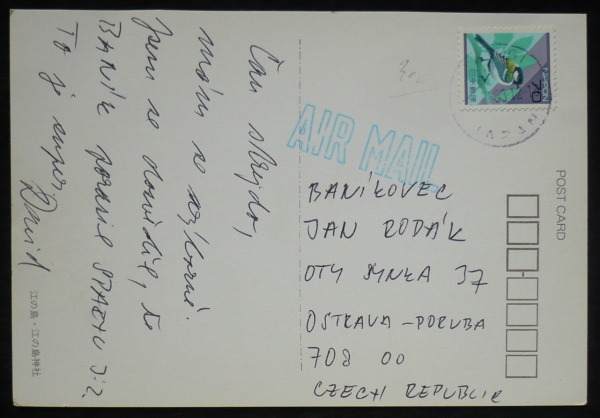 Čau strejdo,
mám se výborně.
Jsem se dozvěděl, že
BANÍK porazil SPARTU 3:2.
To je super
David
江の島・江の島神社
AIR MAIL
70
NIPPON
日本郵便
POST CARD
BANÍKOVEC
JAN RODÁK
OTY SYNKA 37
OSTRAVA-PORUBA
708 00
CZECH REPUBLIC